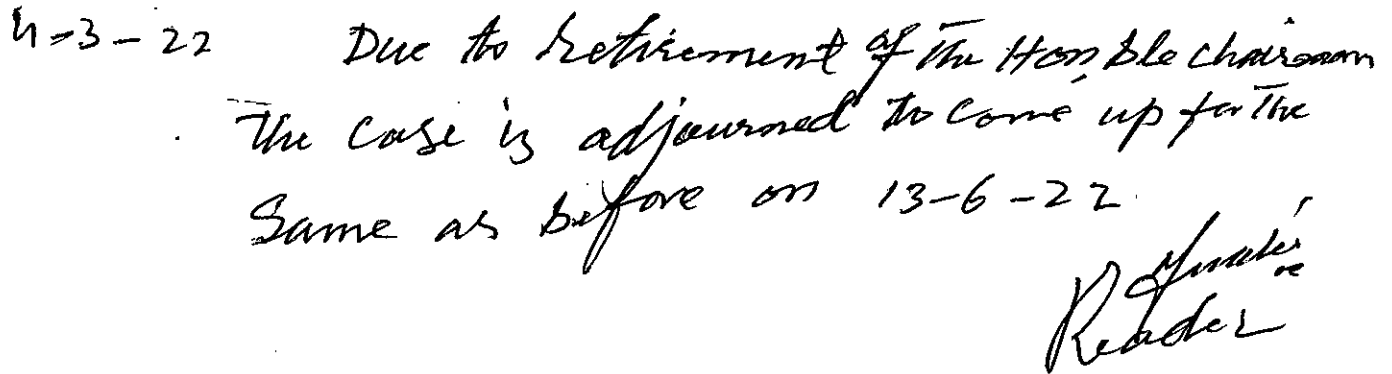 4-3-22 Due to retirement of the Hon,ble chairman
the case is adjourned to come up for the
Same as before on 13-6-22.
Reader